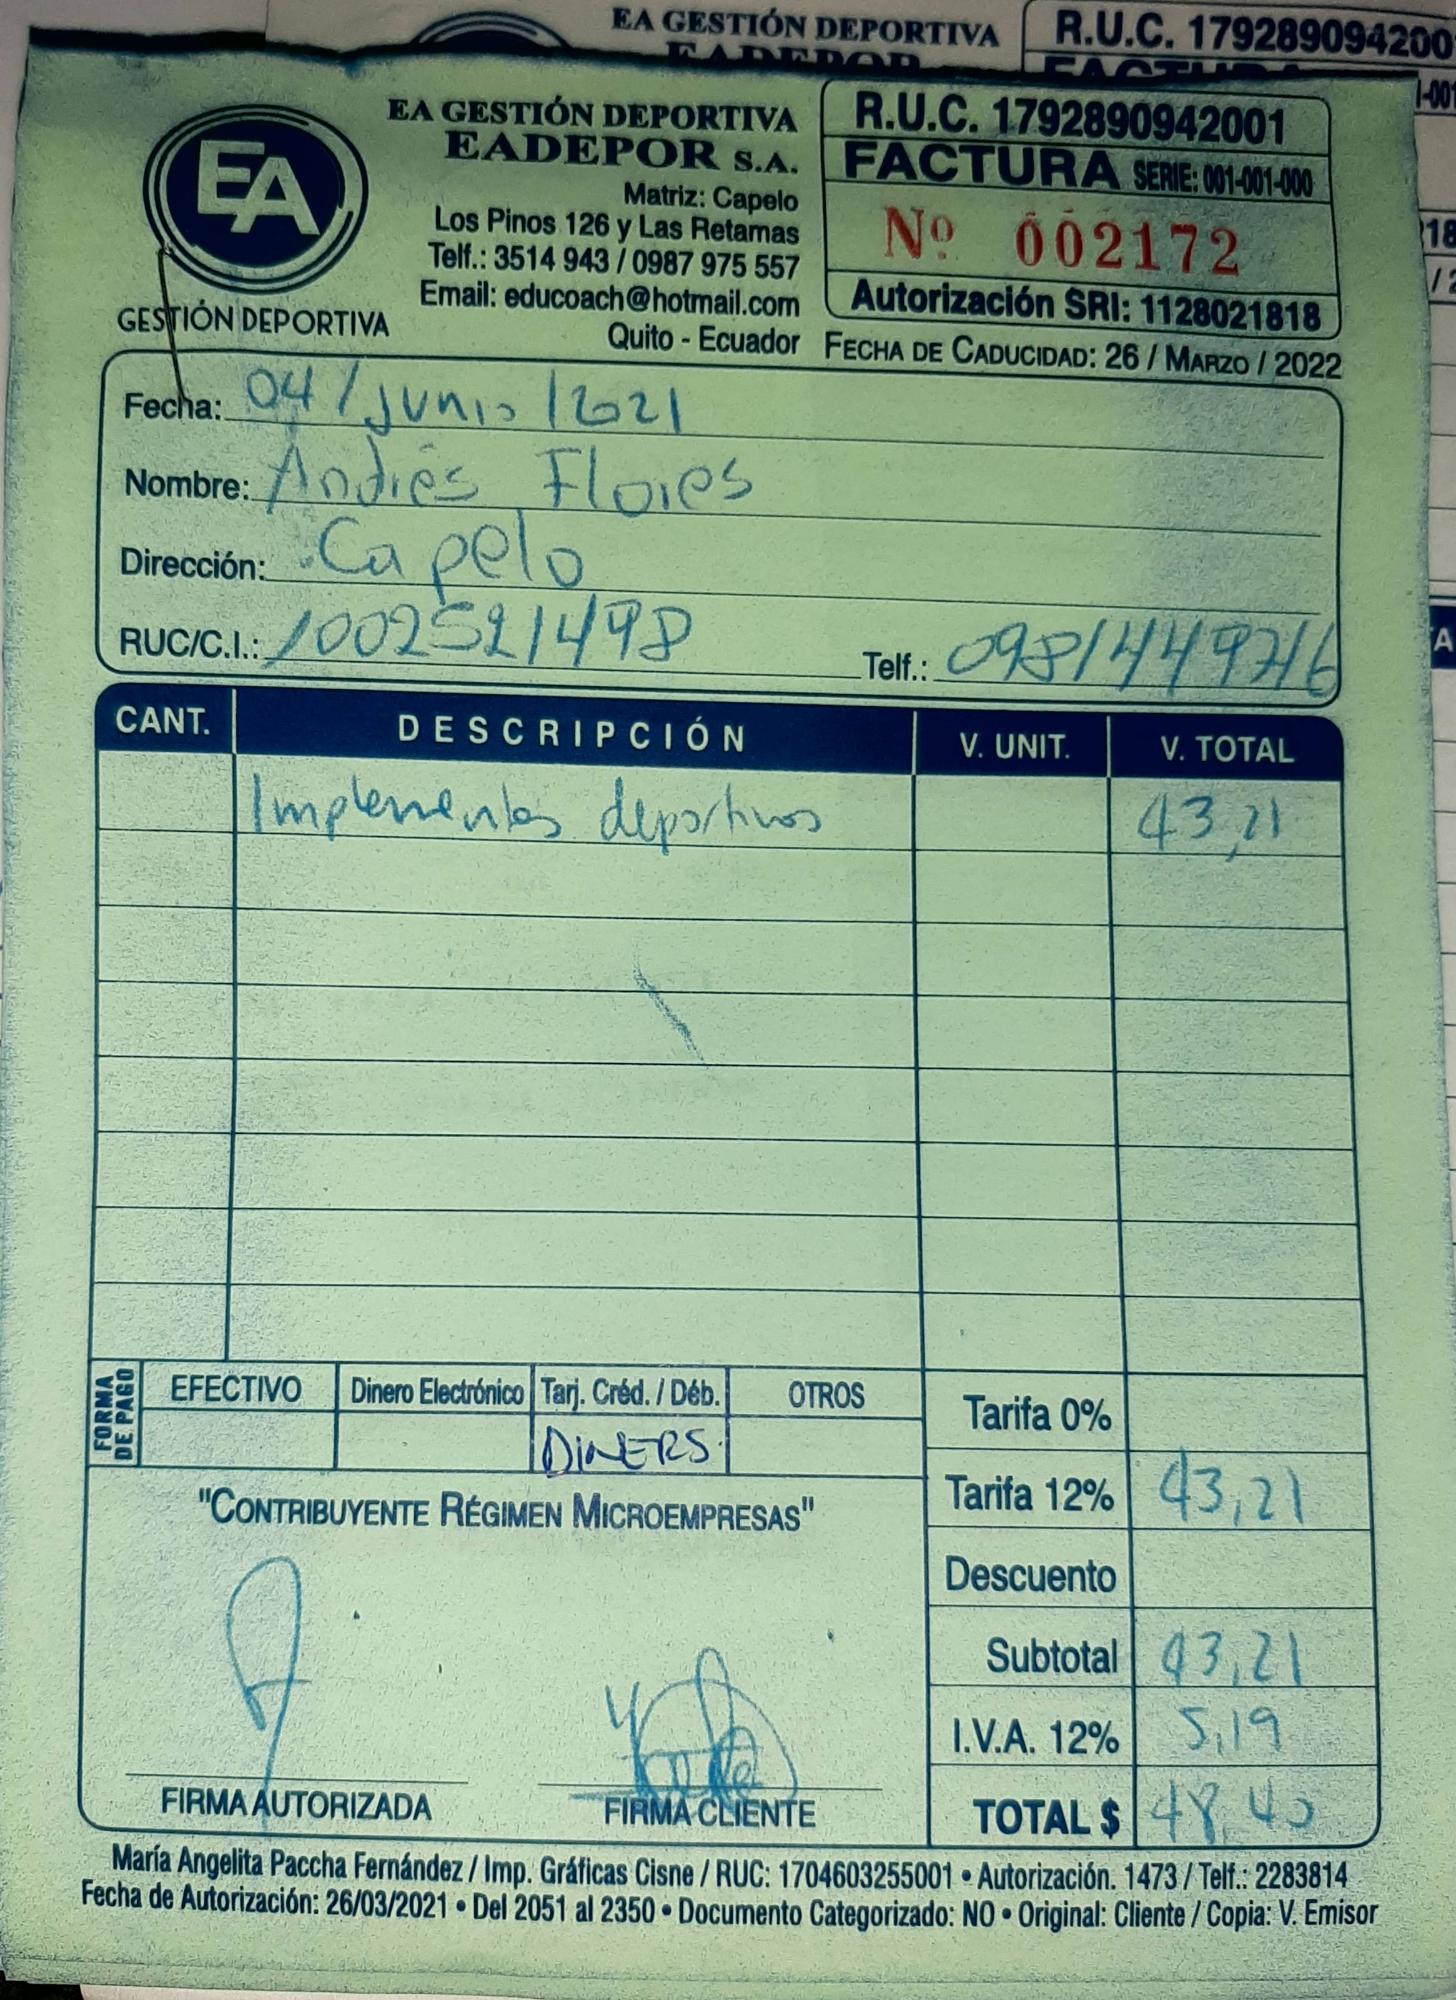 EA GESTIÓN DEPORTIVA
R.U.C. 179289094200
EA
GESTIÓN DEPORTIVA
EA GESTIÓN DEPORTIVA
EADEPOR S.A.
Matriz: Capelo
Los Pinos 126 y Las Retamas
Telf.: 3514 943 / 0987 975 557
Email: educoach@hotmail.com
Quito - Ecuador
R.U.C. 1792890942001
FACTURA SERIE: 001-001-000
Nº 002172
Autorización SRI: 1128021818
FECHA DE CADUCIDAD: 26 / MARZO / 2022
Fecha: 04 / junio / 2021
Nombre: Andrés Flores
Dirección: Capelo
RUC/C.I.: 1002521498 Telf.:
CANT. DESCRIPCIÓN V. UNIT. V. TOTAL
Implementos deportivos 43,21
FORMA DE PAGO
EFECTIVO Dinero Electrónico Tarj. Créd. / Déb. OTROS
DINERS
Tarifa 0%
Tarifa 12% 43,21
Descuento
Subtotal 43,21
I.V.A. 12% 5,19
TOTAL $ 48,40
"CONTRIBUYENTE RÉGIMEN MICROEMPRESAS"
FIRMA AUTORIZADA FIRMA CLIENTE
María Angelita Paccha Fernández / Imp. Gráficas Cisne / RUC: 1704603255001 • Autorización. 1473 / Telf.: 2283814
Fecha de Autorización: 26/03/2021 • Del 2051 al 2350 • Documento Categorizado: NO • Original: Cliente / Copia: V. Emisor